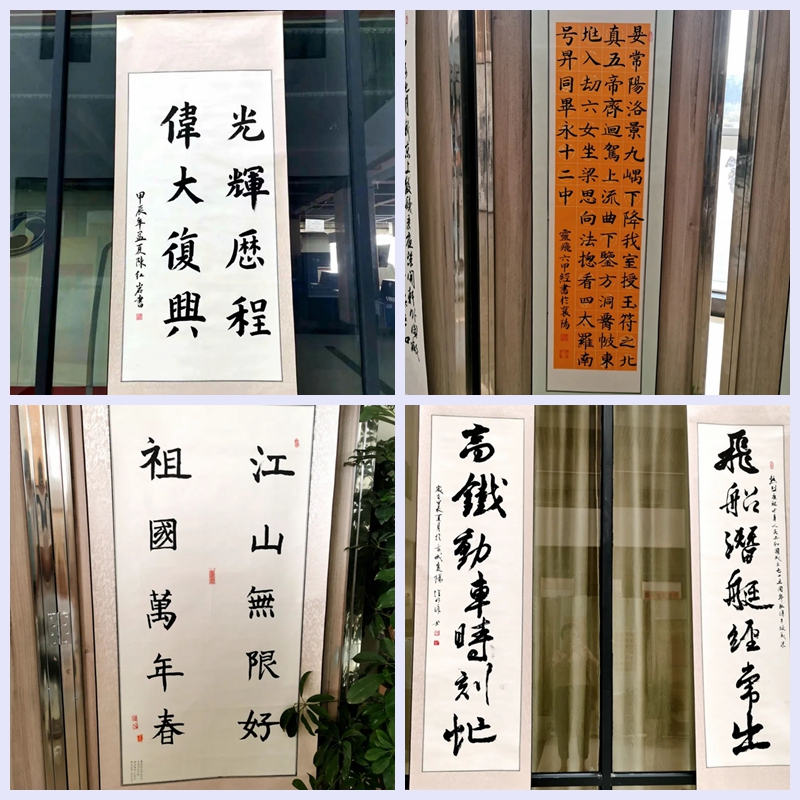 光輝歷程
偉大復興
甲辰年孟夏陳红岩書
晏常陽洛景九嵎下降我室授王符之北
真五帝齊迴駕上流曲下鑒方洞帔東
入劫六女坐梁思向法揔看四太羅南
号昇同畢永十二中
靈飛六甲經書於襄陽
江山無限好
祖國萬年春
飛船潛艇經常出
高鐵動車時刻忙